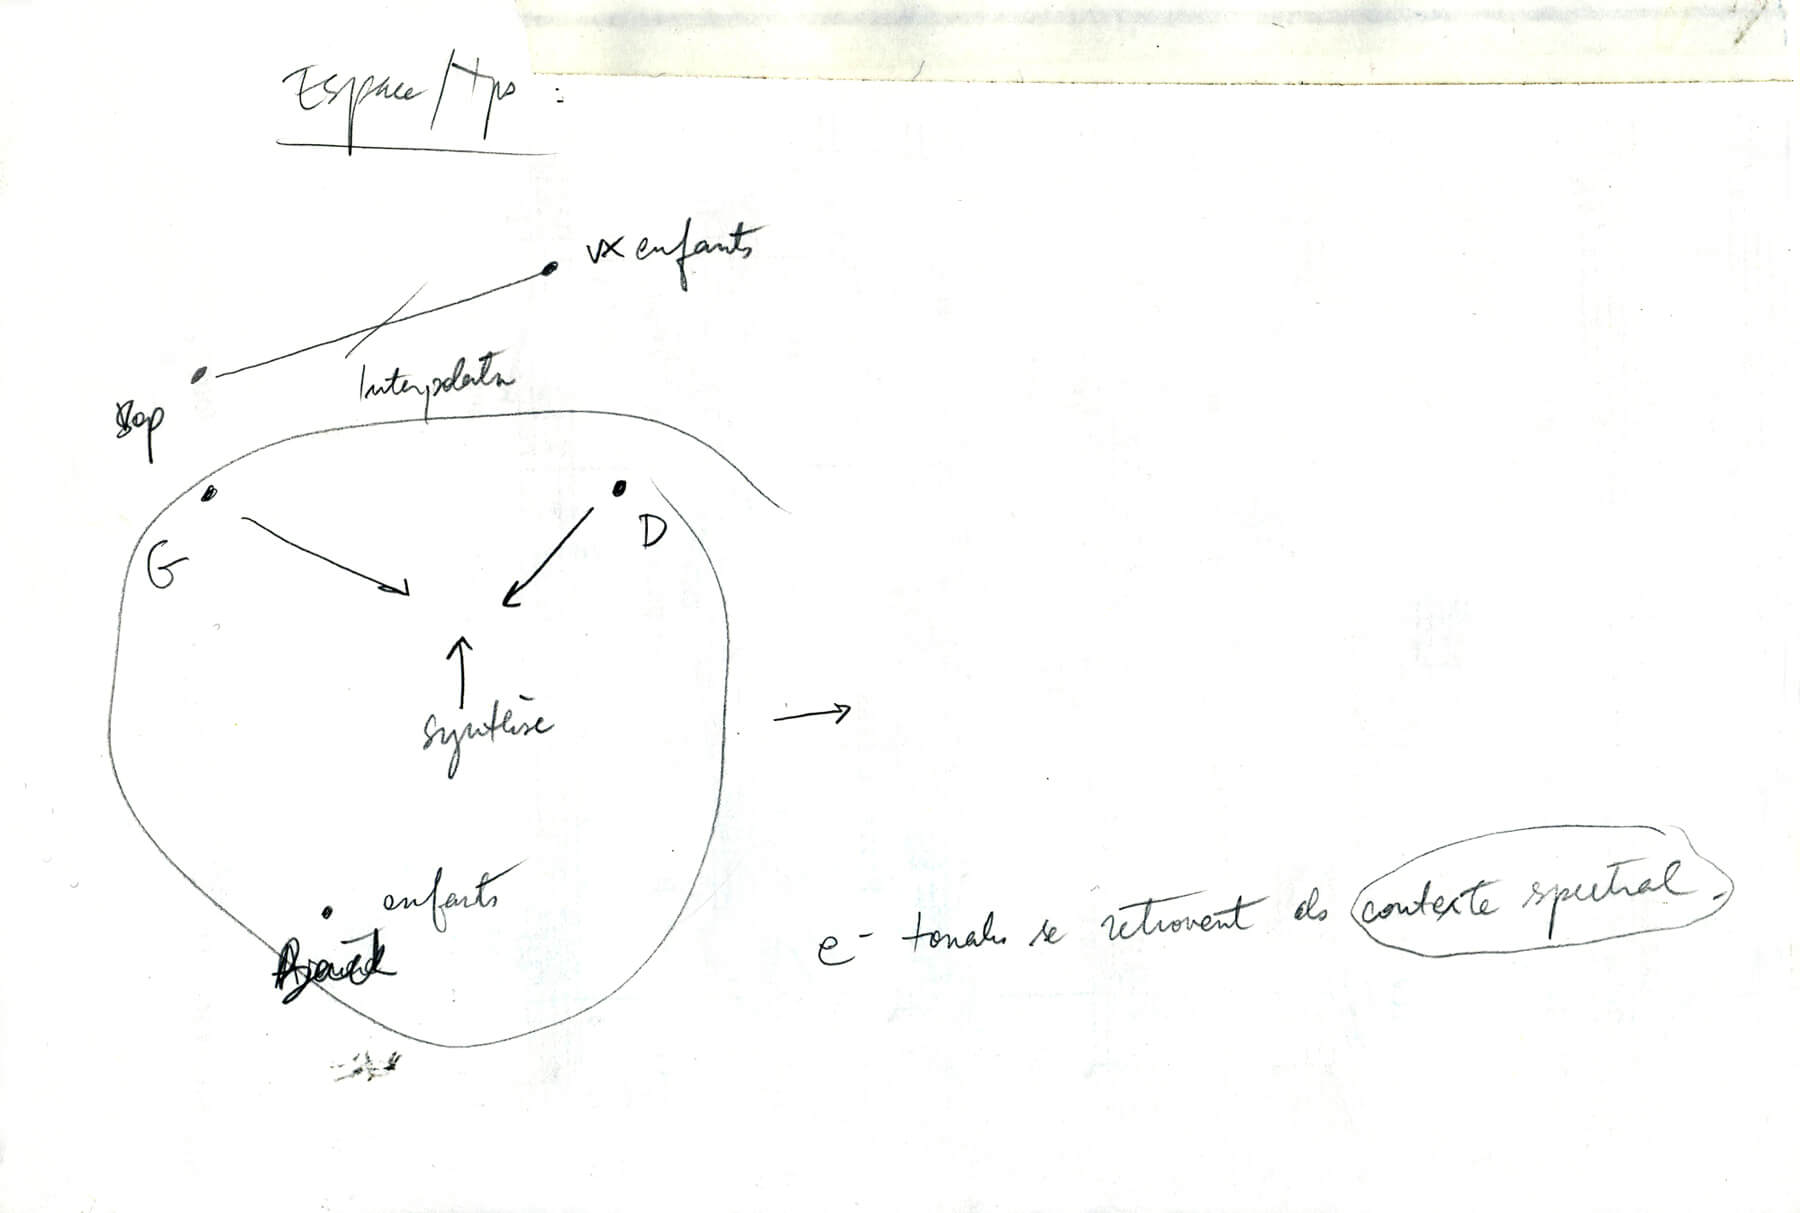 Espace/tps :
vx enfants
Interpolatn
Sop
G
D
synthèse
enfants
e- tonales se retrouvent ds contexte spectral.